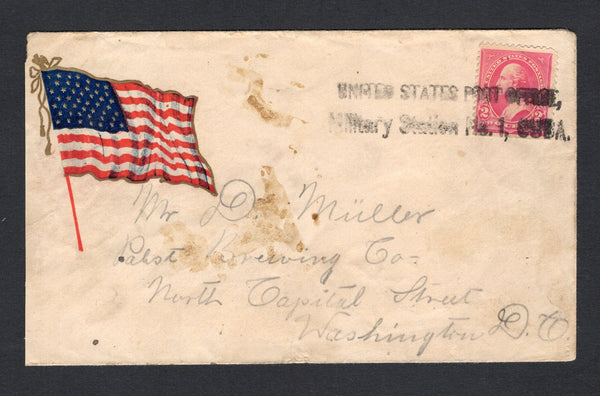 UNITED STATES POST OFFICE,
Military Station No. 1, CUBA.
Mr D. Müller
Pabst Brewing Co-
North Capital Street
Washington D.C.